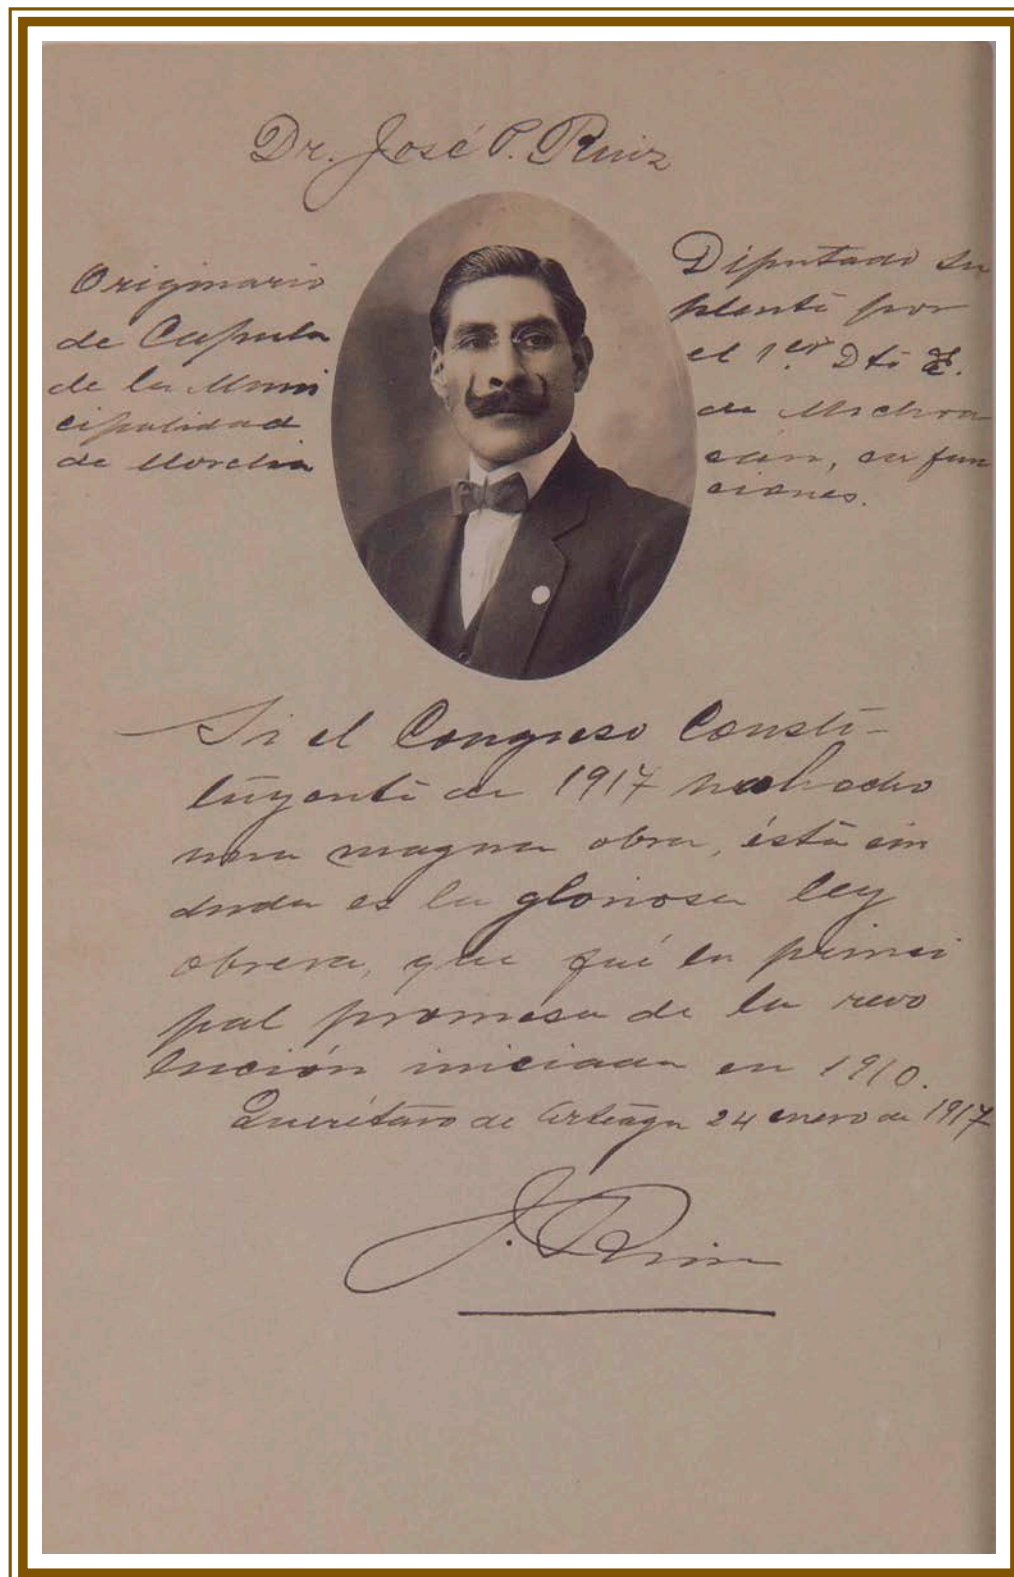 Dr. José P. Ruiz
Originario
de Capula
de la Muni
cipalidad
de Morelia
Diputado su
plente por
el 1.er Dto E.
de Michoa
cán, en fun
ciones.
Si el Congreso Consti-
tuyente de 1917 ha hecho
una magna obra, ésta sin
duda es la gloriosa ley
obrera, que fué la princi
pal promesa de la revo
lución iniciada en 1910.
Querétaro de Arteaga 24 enero de 1917
J. P. Ruiz